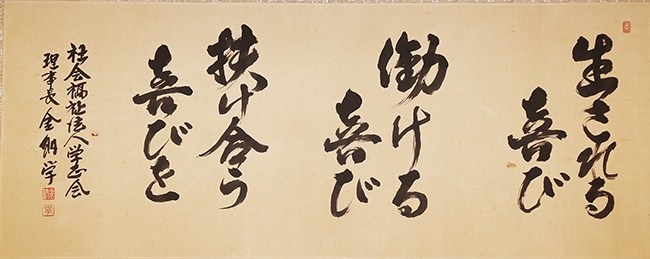 生きれる
喜び
働ける
喜び
扶け合う
喜びを
社会福祉法人学志会
理事長 金